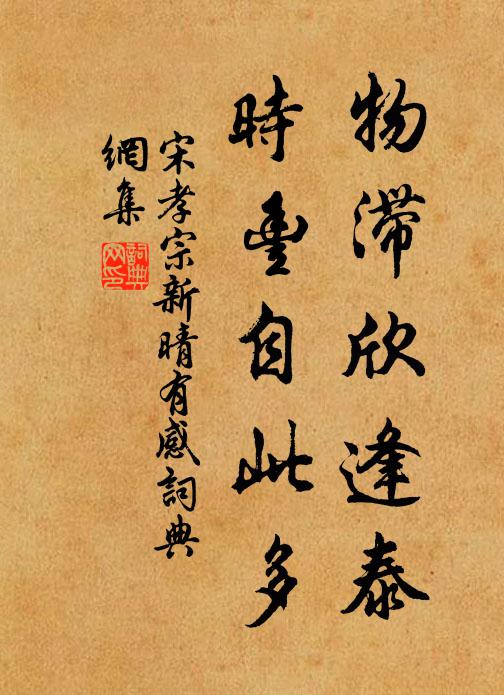 物滯欣逢泰
時豊自此多
宋孝宗新晴有感詞典
網集
詞典
网印